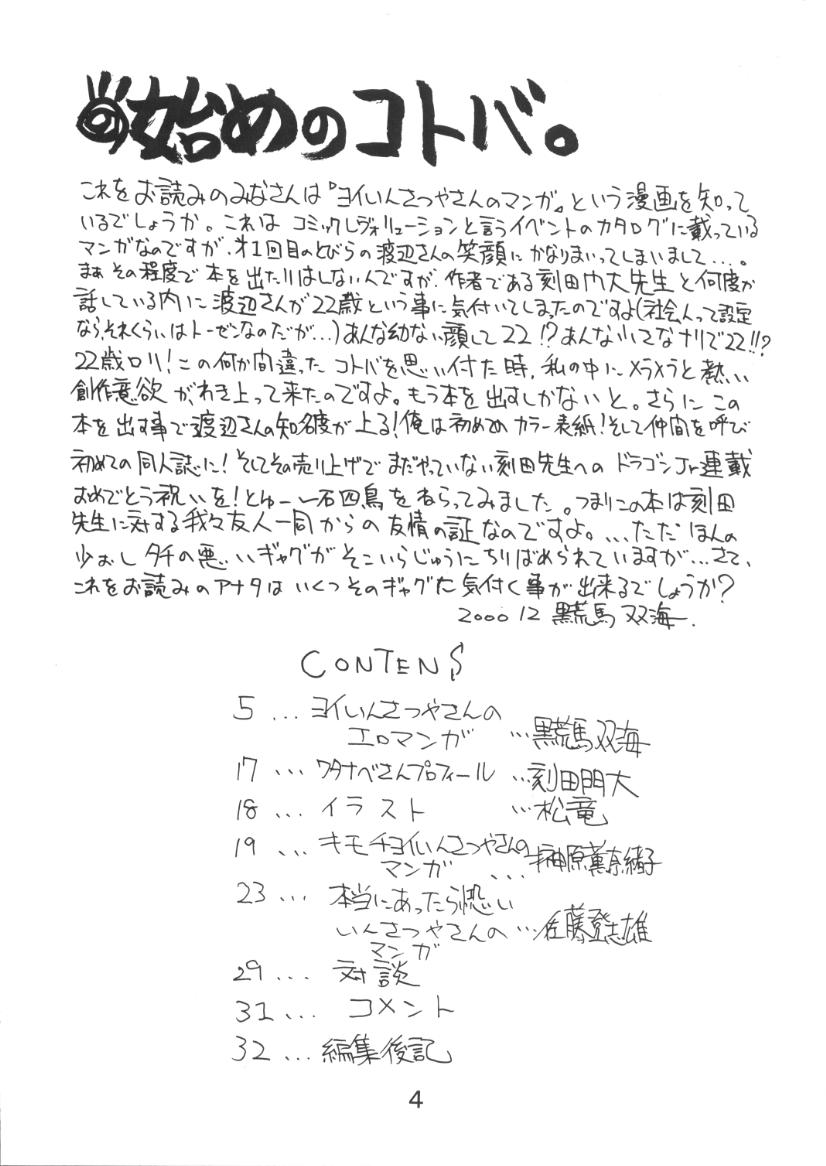 始めのコトバ。
これをお読みのみなさんは『ヨイいんさつやさんのマンガ』という漫画を知って
いるでしょうか。これは コミックレヴォリューションと言うイベントのカタログに載っている
マンガなのですが、才1回目のとびらの渡辺さんの笑顔にかなりまいってしまいまして...。
まぁ その程度で本を出たりはしないんですが、作者である刻田門大先生と何度か
話している内に渡辺さんが22歳という事に気付いてしまったのですよ(社会人って設定
なら、それくらいはトーゼンなのだが...)あんな幼ない顔して22!?あんな小さなナリで22!!?
22歳ロリ!この何か間違ったコトバを思い付た時、私の中にメラメラと熱い
創作意欲がわき上って来たのですよ。もう本を出すしかないと。さらにこの
本を出す事で渡辺さんの知名度が上る!俺は初めてのカラー表紙!そして仲間を呼び
初めての同人誌に!そしてその売り上げでまだやっていない刻田先生へのドラゴンJr連載
おめでとう祝いを!とゆー一石四鳥をねらってみました。つまりこの本は刻田
先生に対する我々友人一同からの友情の証なのですよ。...ただほんの
少おしタチの悪いギャグがそこいらじゅうにちりばめられていますが...さて、
これをお読みのアナタはいくつそのギャグに気付く事が出来るでしょうか?
2000 12 黒荒馬 双海.
CONTENS
5 ... ヨイいんさつやさんの
エロマンガ ...黒荒馬双海
17 ... ワタナベさんプロフィール ...刻田門大
18 ... イラスト ...松竜
19 ... キモチヨイいんさつやさんの
マンガ ...榊原薫奈緒子
23 ... 本当にあったら恐い
いんさつやさんの ...佐藤登志雄
マンガ
29 ... 対談
31 ... コメント
32 ... 編集後記
4